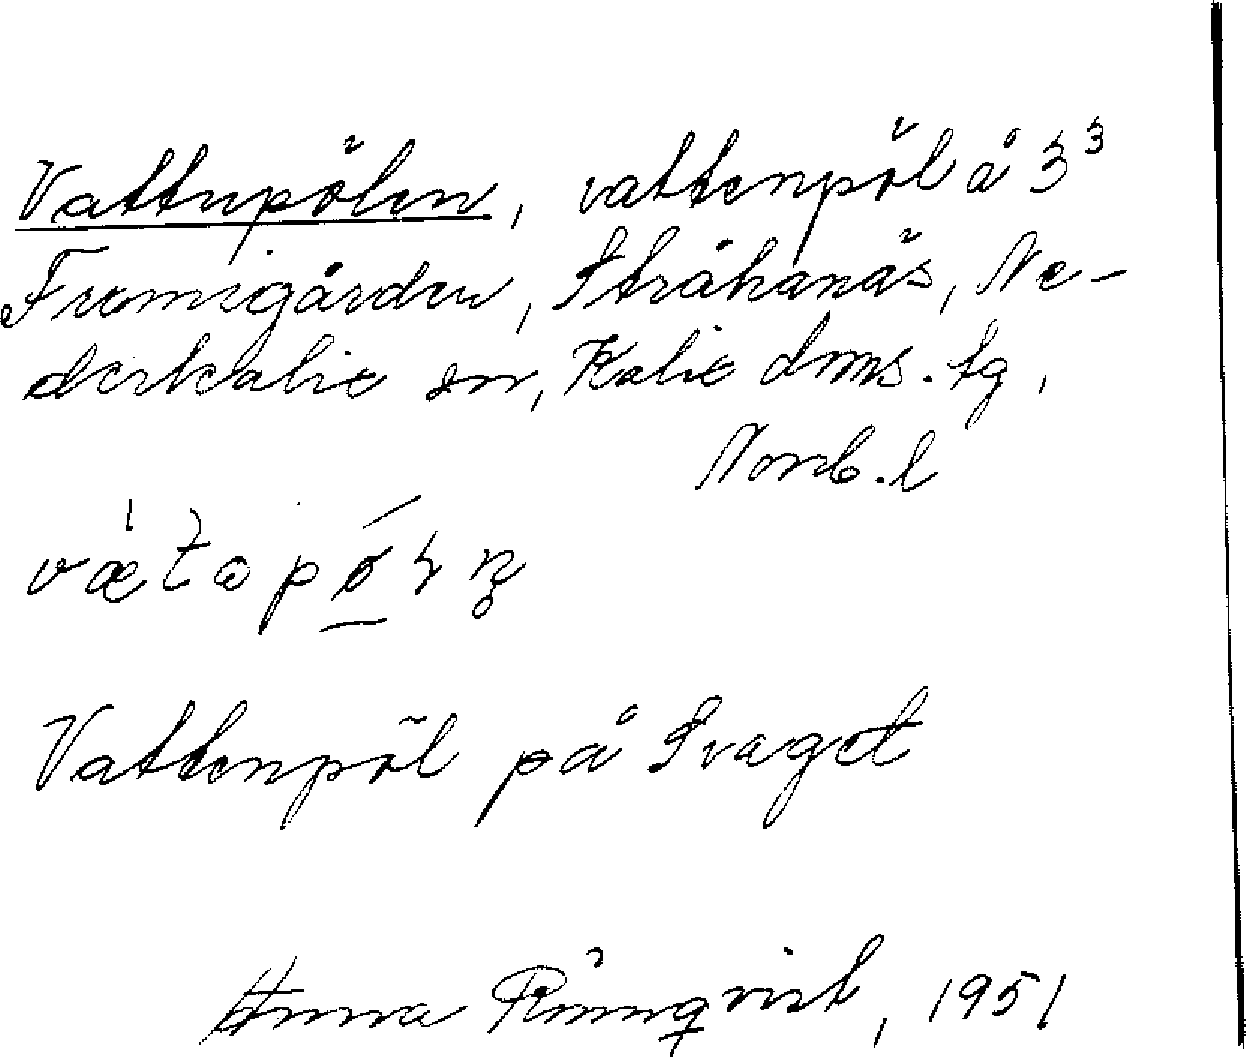 Vattupölen, vattenpöl å 3³
Fromigården, Stråkanäs, Ne-
derkalix sn, Kalix dms. tg,
Norrb. l
Vattenpöl på Svaget
Anna Rönnqvist, 1951